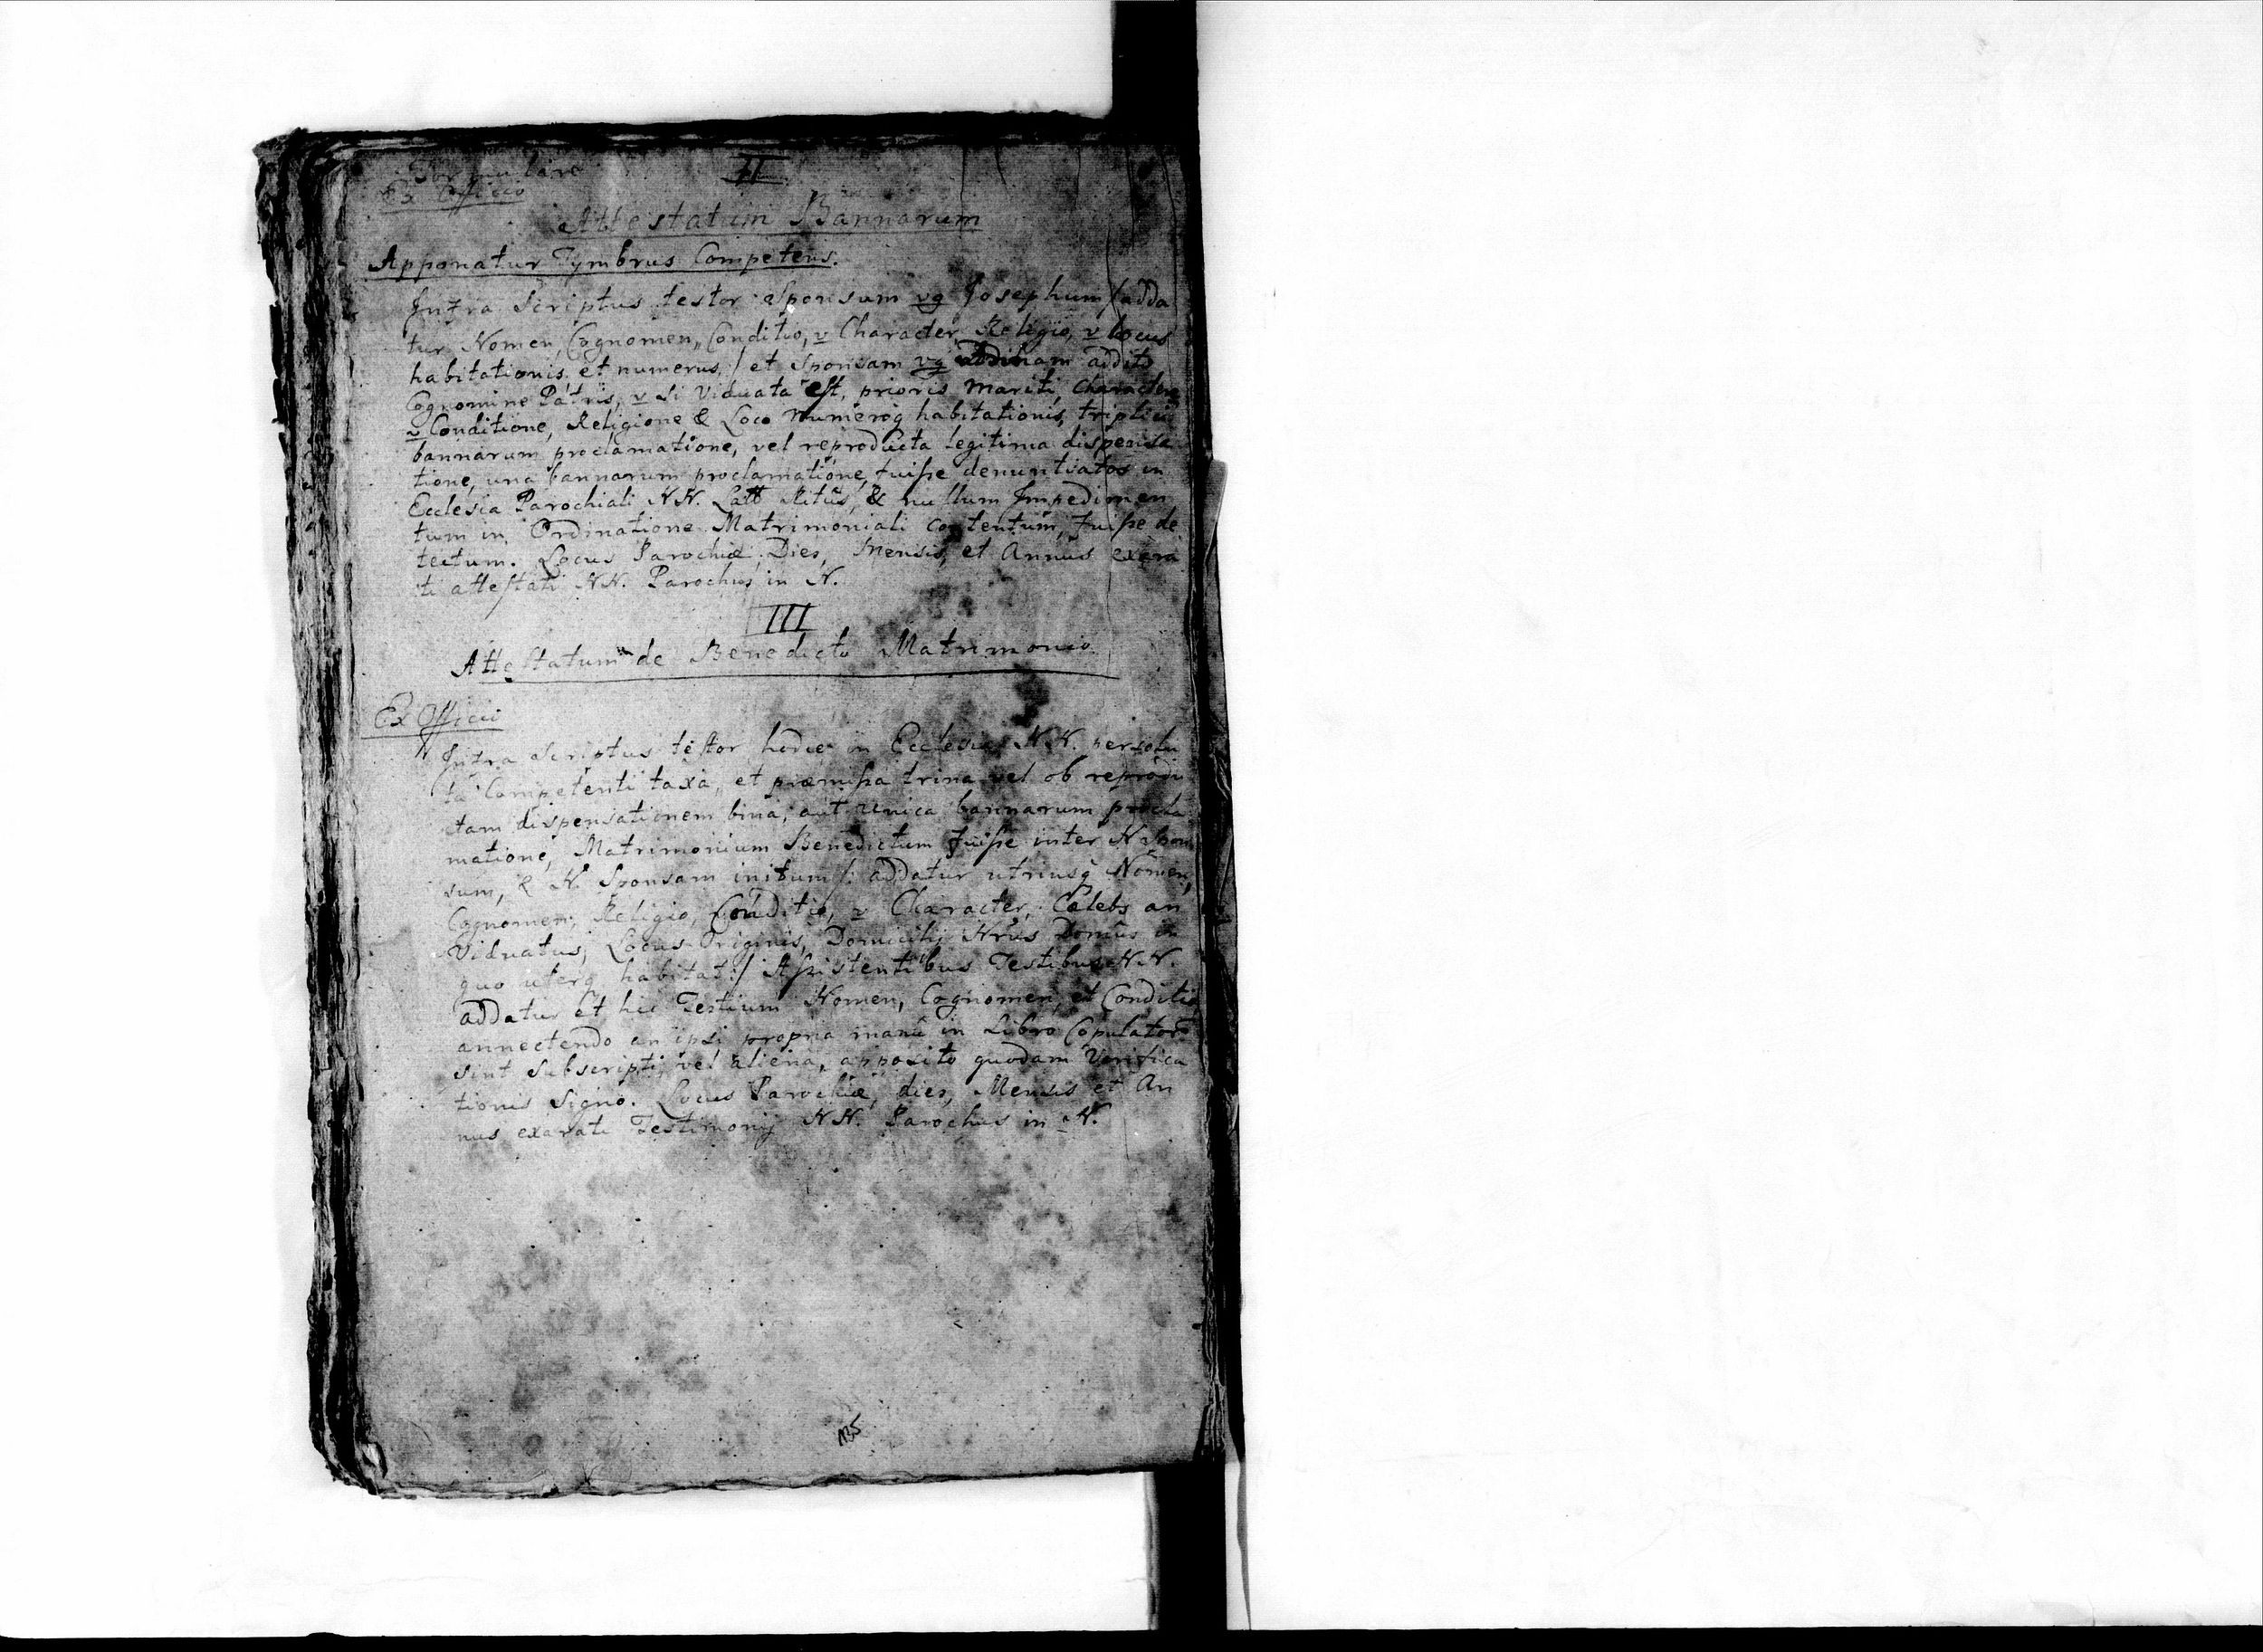 Formulare II
Ex Officio
Attestatum Bannarum
Apponatur Tymbrus Competens.
Infra Scriptus testor Sponsum vg Josephum /adda
tur Nomen, Cognomen, Conditio, v Character, Religio, v locus
habitationis et numerus / et Sponsam vg addito
Cognomine Patris, v Si Viduata est, prioris Mariti, Charactere
v Conditione, Religione & Loco Numeroq habitationis, triplici
bannarum proclamatione, vel reproducta legitima dispensa
tione, una bannarum proclamatione, fuisse denuntiatos in
Ecclesia Parochiali N.N. Latt Ritus, & nullum Impedimen
tum in Ordinatione Matrimoniali contentum, fuisse de
tectum. Locus Parochiæ, Dies, Mensis, et Annus exara
ti attestati N.N. Parochus in N.
III
Attestatum de Benedicto Matrimonio
Ex Officio
Infra Scriptus testor hodie in Ecclesia N.N. persolu
ta Competenti taxa, et præmissa trina vel ob reprodu
ctam dispensationem bina, aut unica bannarum procla
matione, Matrimonium Benedictum fuisse inter N Spon
sum, & N. Sponsam initum /: addatur utriusq Nomen,
Cognomen, Religio, Conditio, v Character, Cælebs an
Viduatus, Locus Originis, Domicilij Nrus Domus in
quo uterq habitat :/ Assistentibus Testibus N.N.
addatur et hic Testium Nomen, Cognomen, et Conditio
annectendo an ipsi propria manu in Libro Copulator
sint Subscripti, vel aliena, apposito quodam Verifica
tionis Signo. Locus Parochiæ, dies, Mensis et An
nus exarati Testimonij N.N. Parochus in N.
135